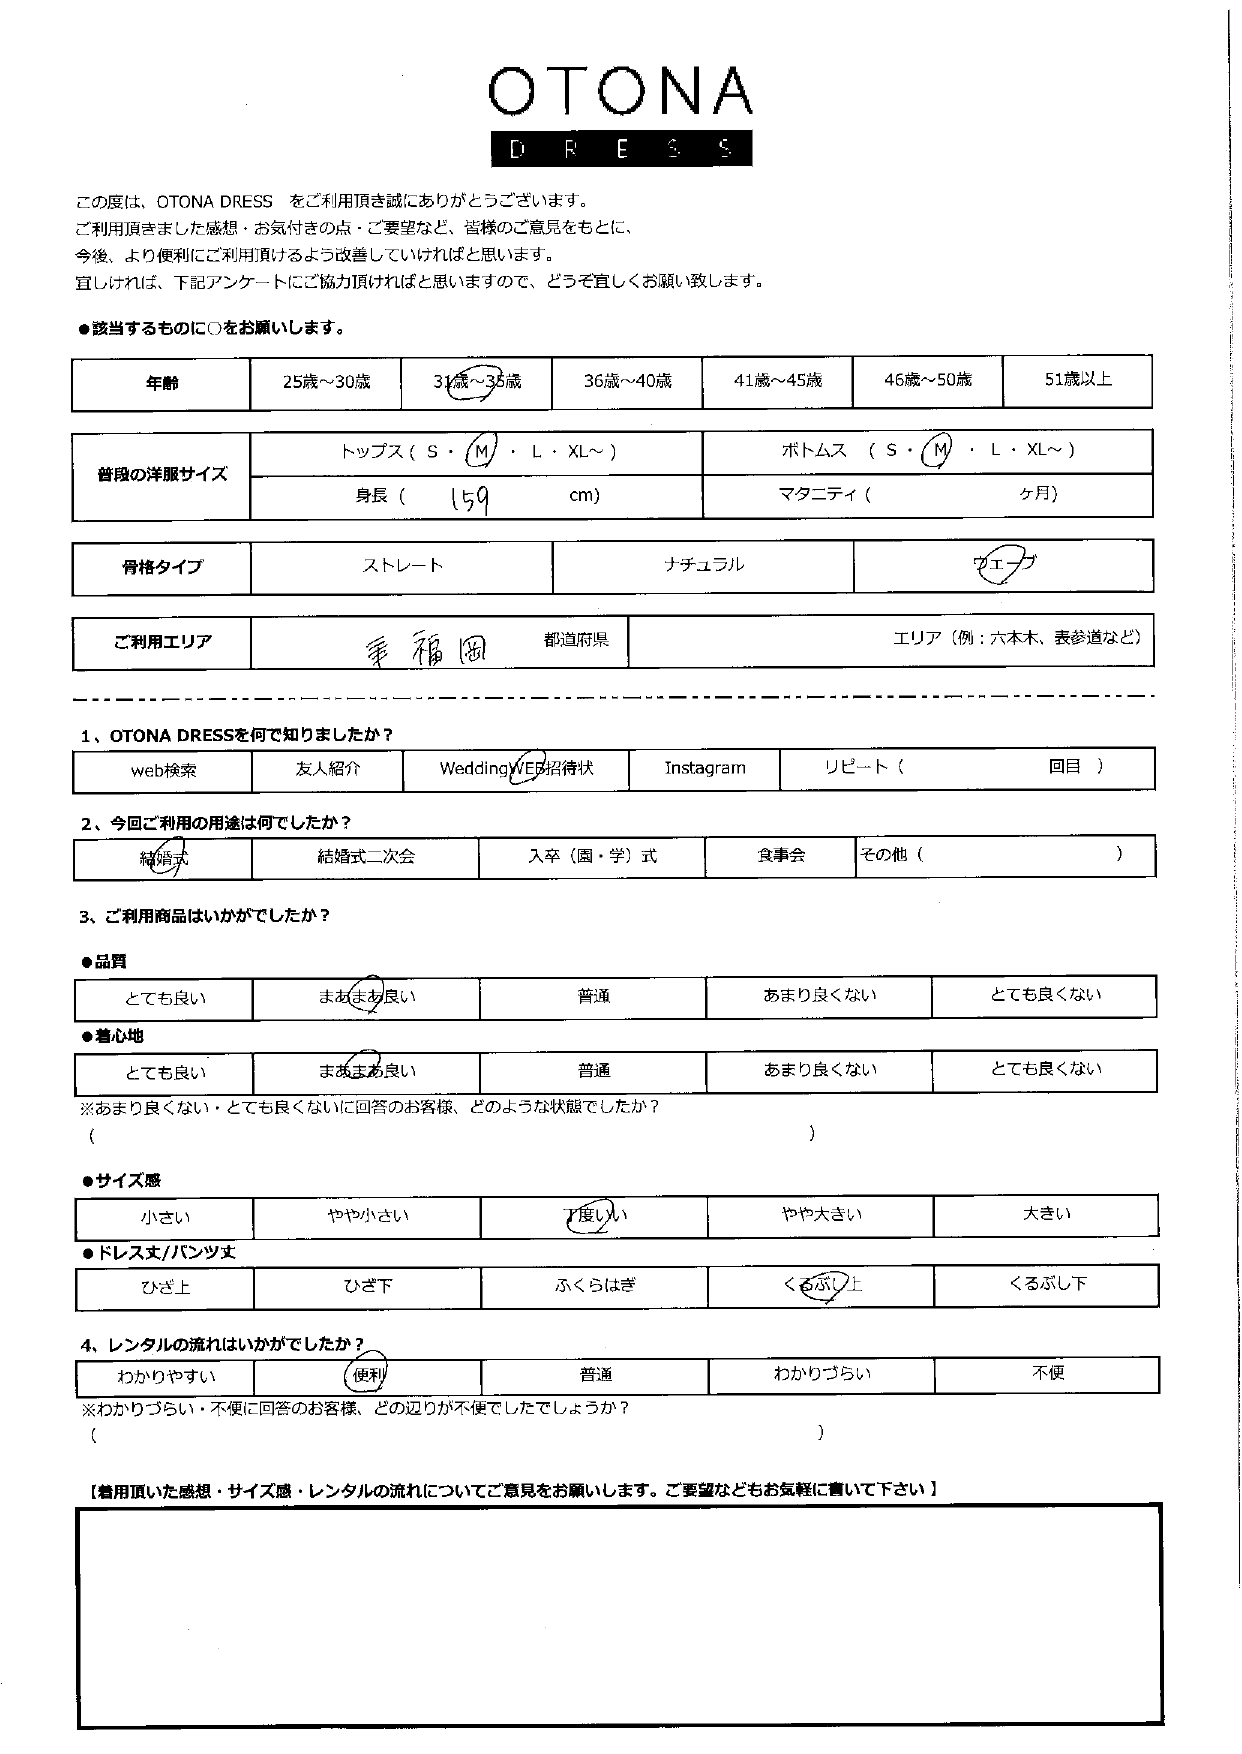 OTONA
DRESS
この度は、OTONA DRESS　をご利用頂き誠にありがとうございます。
ご利用頂きました感想・お気付きの点・ご要望など、皆様のご意見をもとに、
今後、より便利にご利用頂けるよう改善していければと思います。
宜しければ、下記アンケートにご協力頂ければと思いますので、どうぞ宜しくお願い致します。
●該当するものに○をお願いします。
年齢 25歳～30歳 31歳～35歳 36歳～40歳 41歳～45歳 46歳～50歳 51歳以上
普段の洋服サイズ
トップス ( S ・ M ・ L ・ XL～ ) ボトムス ( S ・ M ・ L ・ XL～ )
身長 ( 159 cm) マタニティ ( ケ月)
骨格タイプ ストレート ナチュラル ウェーブ
ご利用エリア 福岡 都道府県 エリア（例：六本木、表参道など）
1、OTONA DRESSを何で知りましたか？
web検索 友人紹介 WeddingWEB招待状 Instagram リピート（ 回目 ）
2、今回ご利用の用途は何でしたか？
結婚式 結婚式二次会 入卒（園・学）式 食事会 その他（ ）
3、ご利用商品はいかがでしたか？
●品質
とても良い まあまあ良い 普通 あまり良くない とても良くない
●着心地
とても良い まあまあ良い 普通 あまり良くない とても良くない
※あまり良くない・とても良くないに回答のお客様、どのような状態でしたか？
（ ）
●サイズ感
小さい やや小さい 丁度いい やや大きい 大きい
●ドレス丈/パンツ丈
ひざ上 ひざ下 ふくらはぎ くるぶし上 くるぶし下
4、レンタルの流れはいかがでしたか？
わかりやすい 便利 普通 わかりづらい 不便
※わかりづらい・不便に回答のお客様、どの辺りが不便でしたでしょうか？
（ ）
【着用頂いた感想・サイズ感・レンタルの流れについてご意見をお願いします。ご要望などもお気軽に書いて下さい】